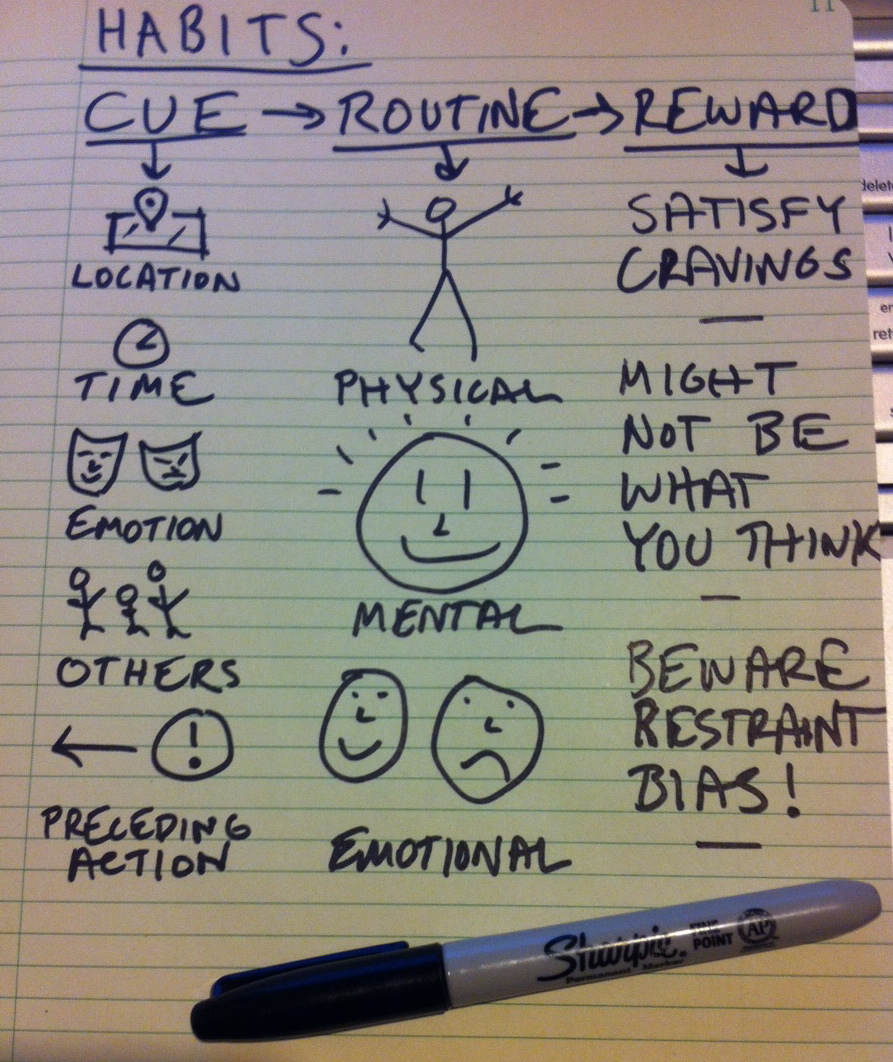 11
HABITS:
CUE → ROUTINE → REWARD
LOCATION
TIME
EMOTION
OTHERS
PRECEDING
ACTION
PHYSICAL
MENTAL
EMOTIONAL
SATISFY
CRAVINGS
MIGHT
NOT BE
WHAT
YOU THINK
BEWARE
RESTRAINT
BIAS!
delete
ret
Sharpie. FINE
POINT
AP
Permanent Marker